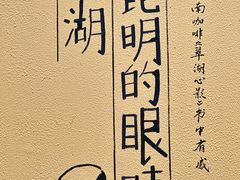 湖
昆明的眼睛
南咖啡《翠湖心影》书中有感